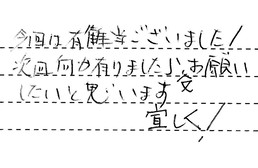 今回は有難当ございました!
次回何か有りましたらお願い
したいと思います
宜しく!